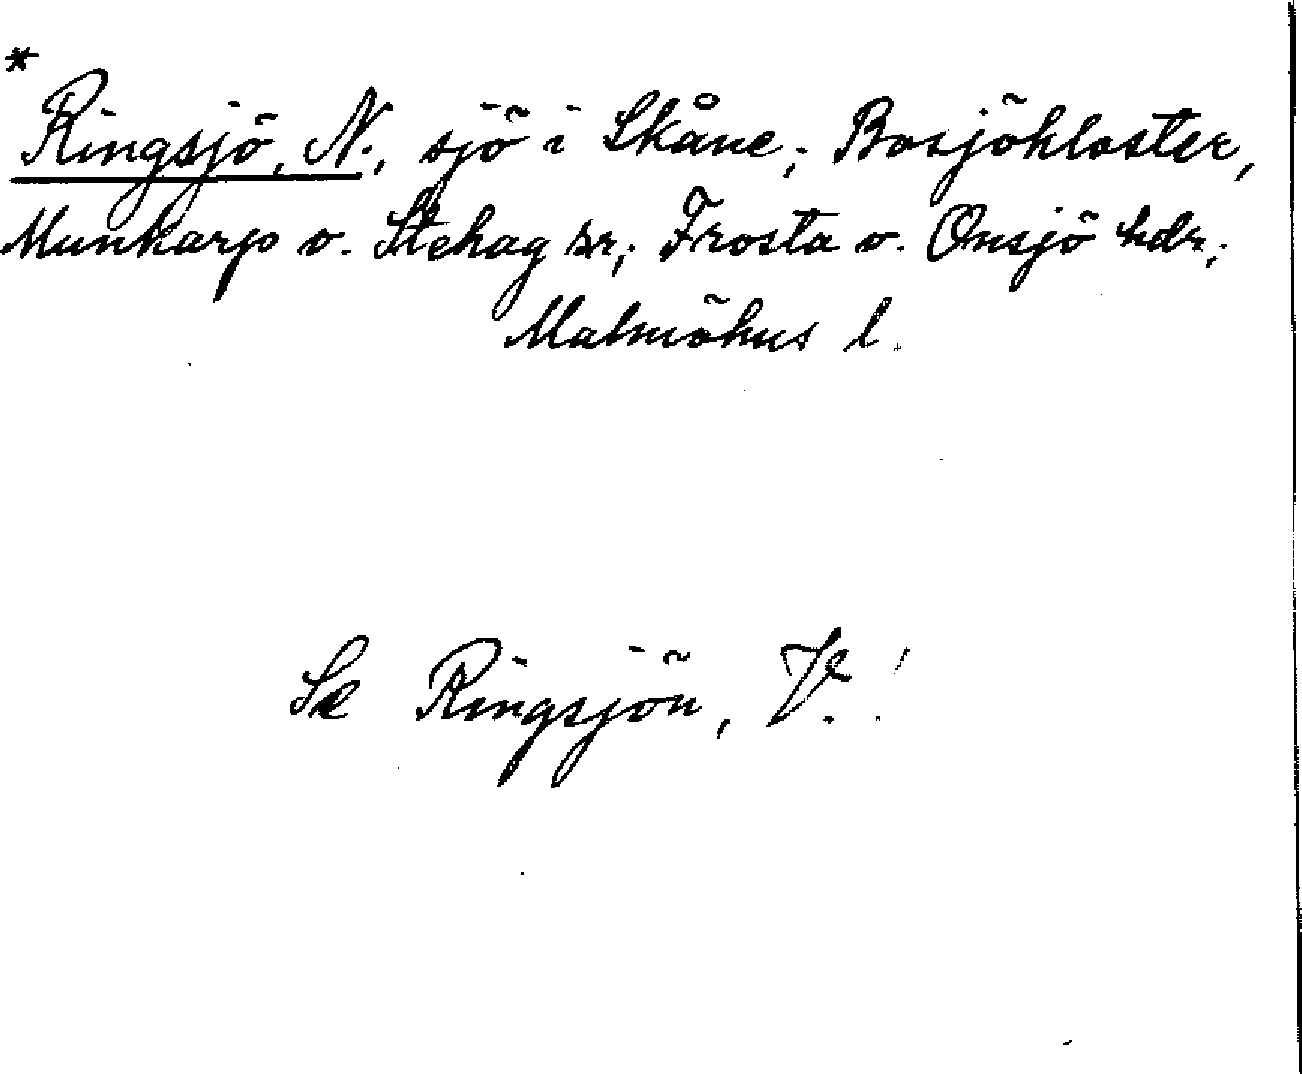 *
Ringsjö, N., sjö i Skåne; Bosjökloster,
Munkarp o. Stehag sr; Frosta o. Onsjö hdr;
Malmöhus l.
Se Ringsjön, V.!